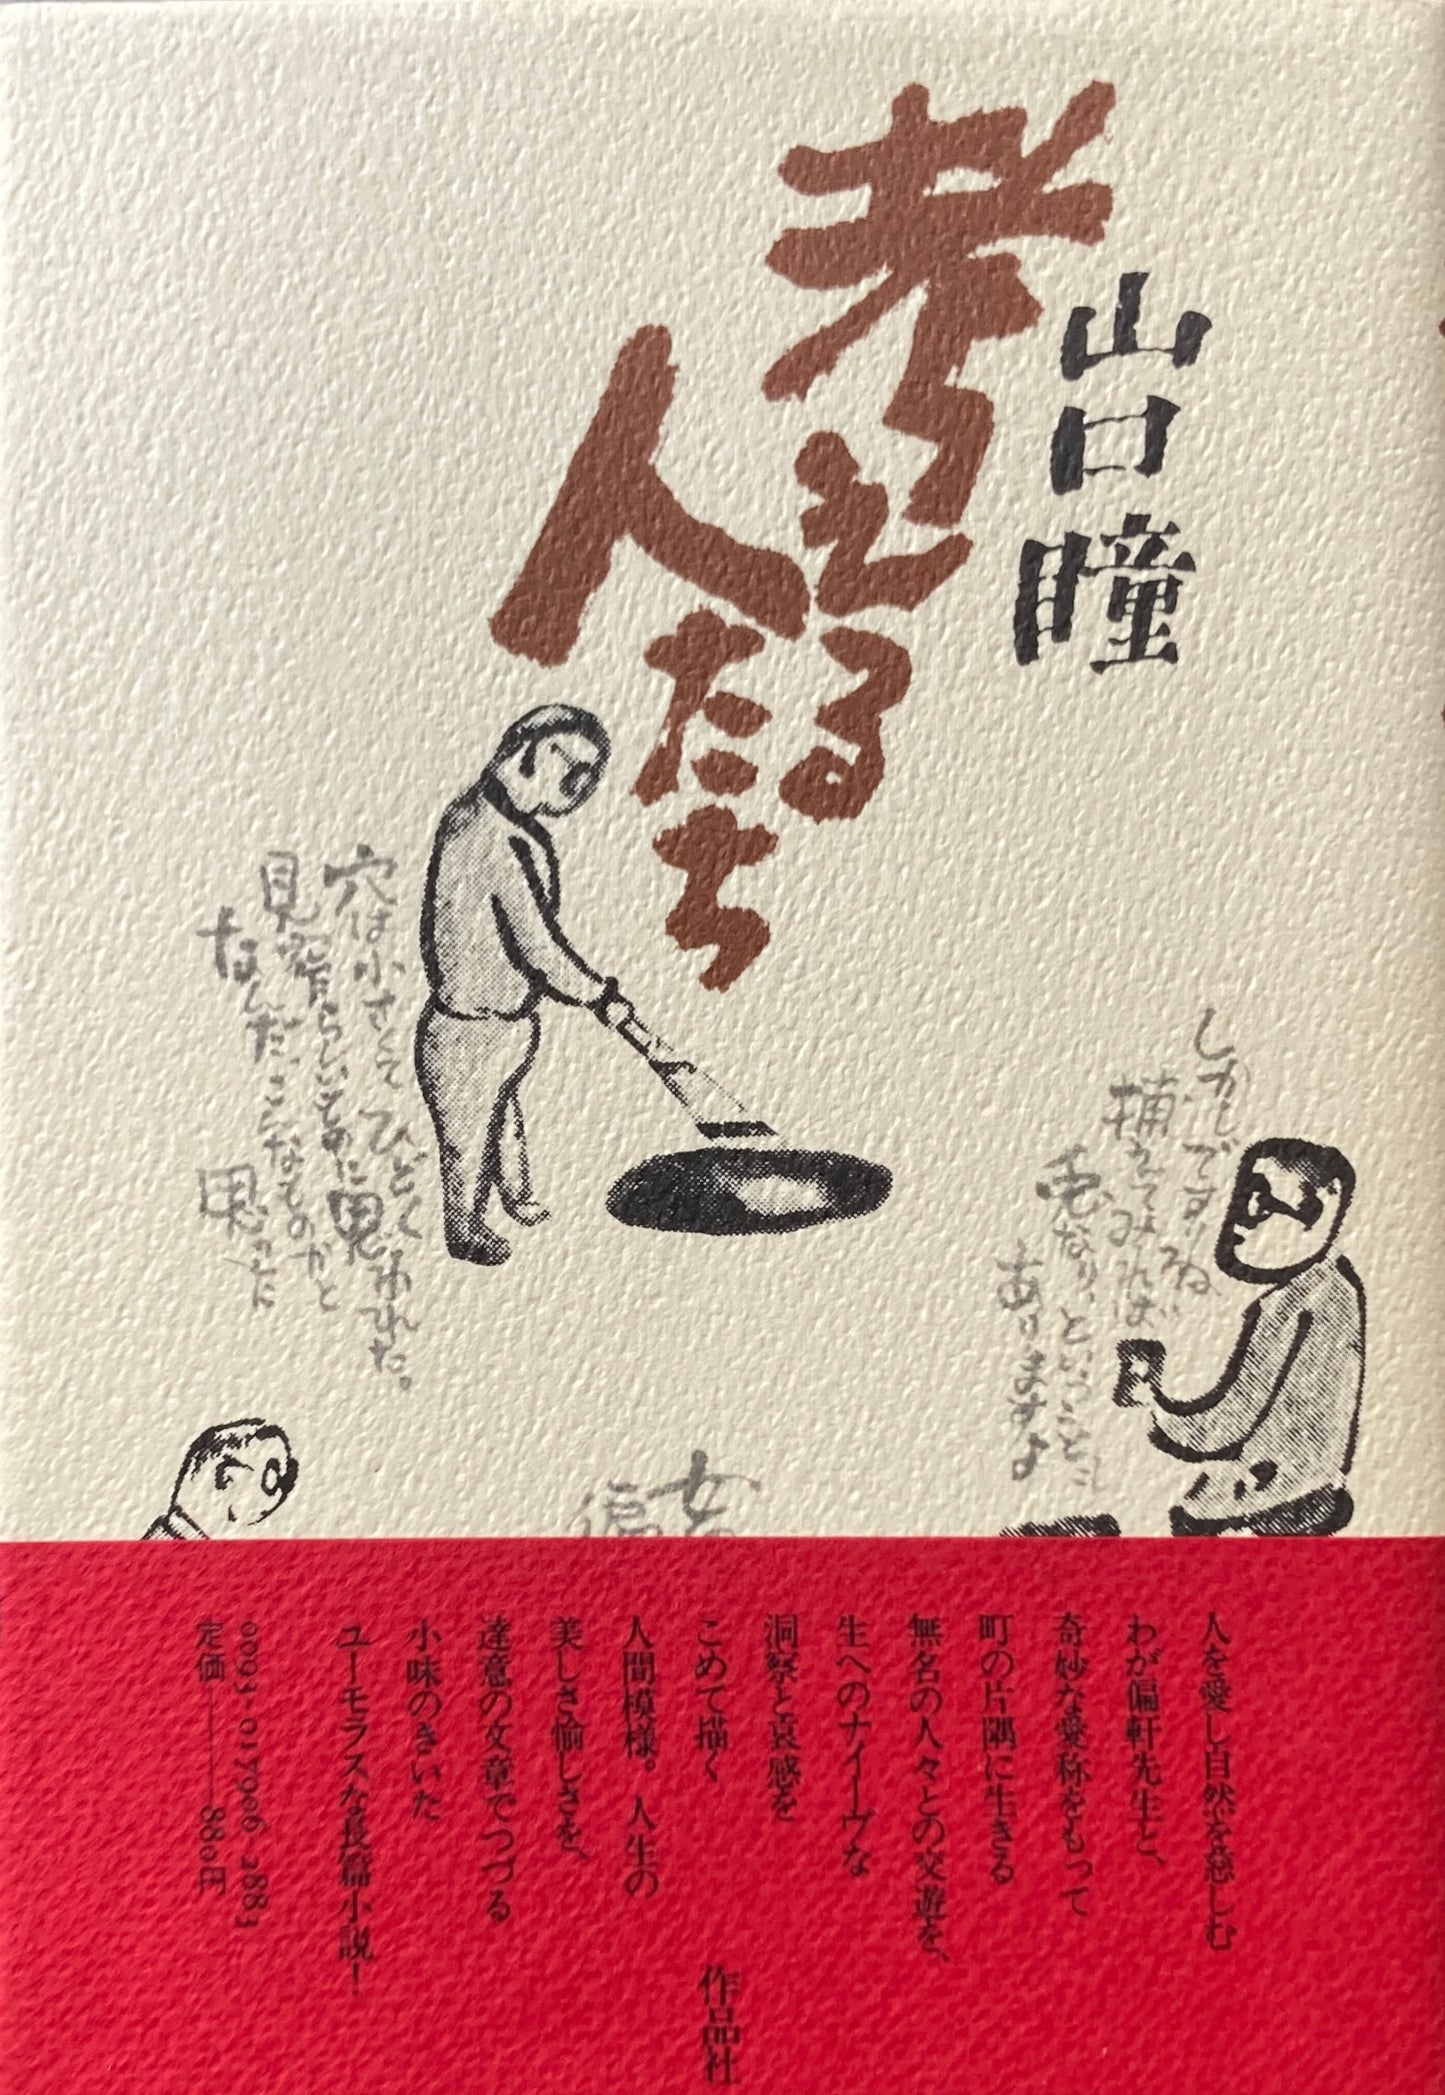 山口瞳
考える
人たち
しかしですね
捕えてみれば
ということも
ありますよ
穴は小さくてひどく
見窄らしいものに思われた。
なんだ、こんなものかと
思った
女
人を愛し自然を慈しむ
わが偏軒先生と、
奇妙な愛称をもって
町の片隅に生きる
無名の人々との交遊を、
生へのナイーヴな
洞察と哀感を
こめて描く
人間模様。人生の
美しさ愉しさを、
達意の文章でつづる
小味のきいた
ユーモラスな長篇小説！
0093-017906-2883
定価――880円
作品社